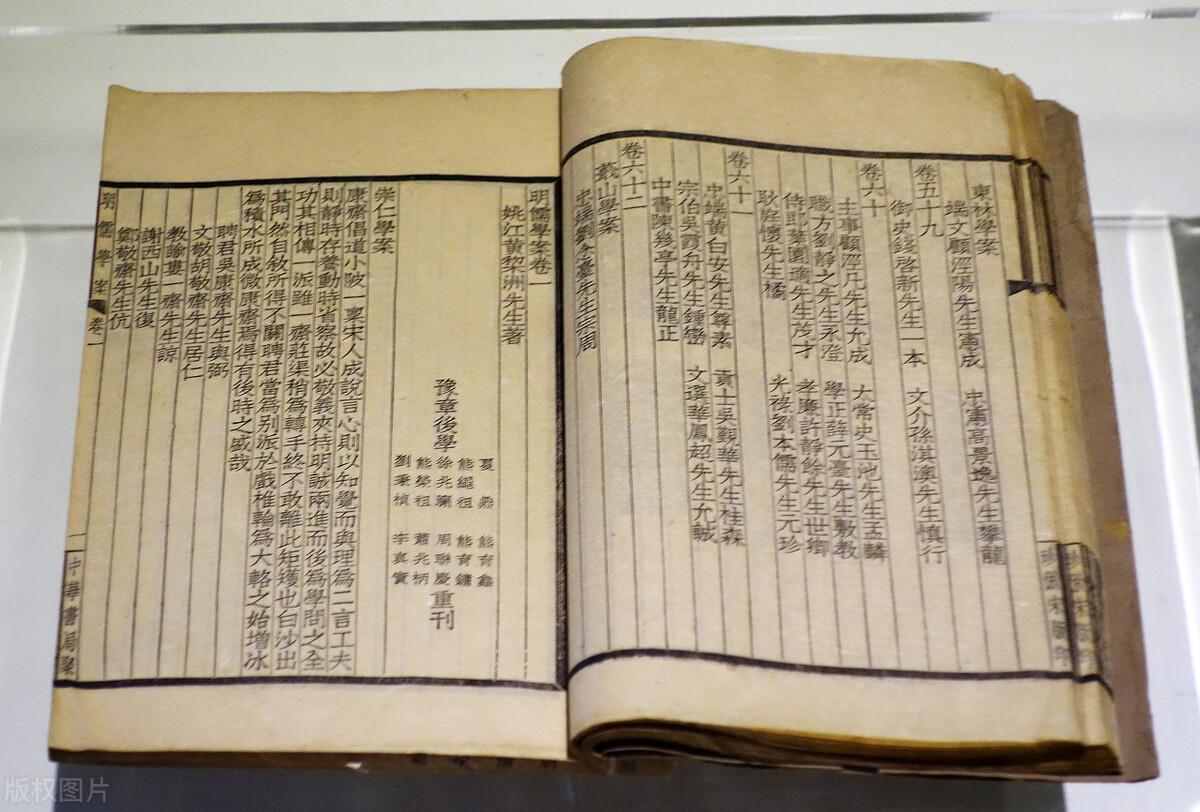 東林學案
端文顧涇陽先生憲成 忠憲高景逸先生攀龍
卷五十九
御史錢啓新先生一本 文介孫淇澳先生慎行
卷六十
主事顧涇凡先生允成 太常史玉池先生孟麟
職方劉靜之先生永澄 學正薛元臺先生敷教
侍郎葉園適先生茂才 孝廉許靜餘先生世卿
耿庭懷先生橘 光祿劉本儒先生元珍
卷六十一
忠端黃白安先生尊素 貢士吳覲華先生桂森
宗伯吳霞舟先生鍾巒 文選華鳳超先生允誠
中書陳幾亭先生龍正
卷六十二
蕺山學案
忠端劉念臺先生宗周
明儒學案卷一
姚江黃棃洲先生著
豫章後學
夏鼎 熊育鑫
熊繩祖 熊育鏞
徐兆瀾 周聯慶
熊榮祖 蕭兆柄
劉秉楨 李真實
重刊
崇仁學案
康齋倡道小陂一稟宋人成說言心則以知覺而與理爲二言工夫
則靜時存養動時省察故必敬義夾持明誠兩進而後爲學問之全
功其相傳一派雖一齋莊渠稍爲轉手終不敢離此矩矱也白沙出
其門然自敘所得不關聘君當爲別派於戲椎輪爲大輅之始增冰
爲積水所成微康齋焉得有後時之盛哉
聘君吳康齋先生與弼
文敬胡敬齋先生居仁
教諭婁一齋先生諒
謝西山先生復
鄭敬齋先生伉
明儒學案 卷一 一 中華書局聚
版权图片